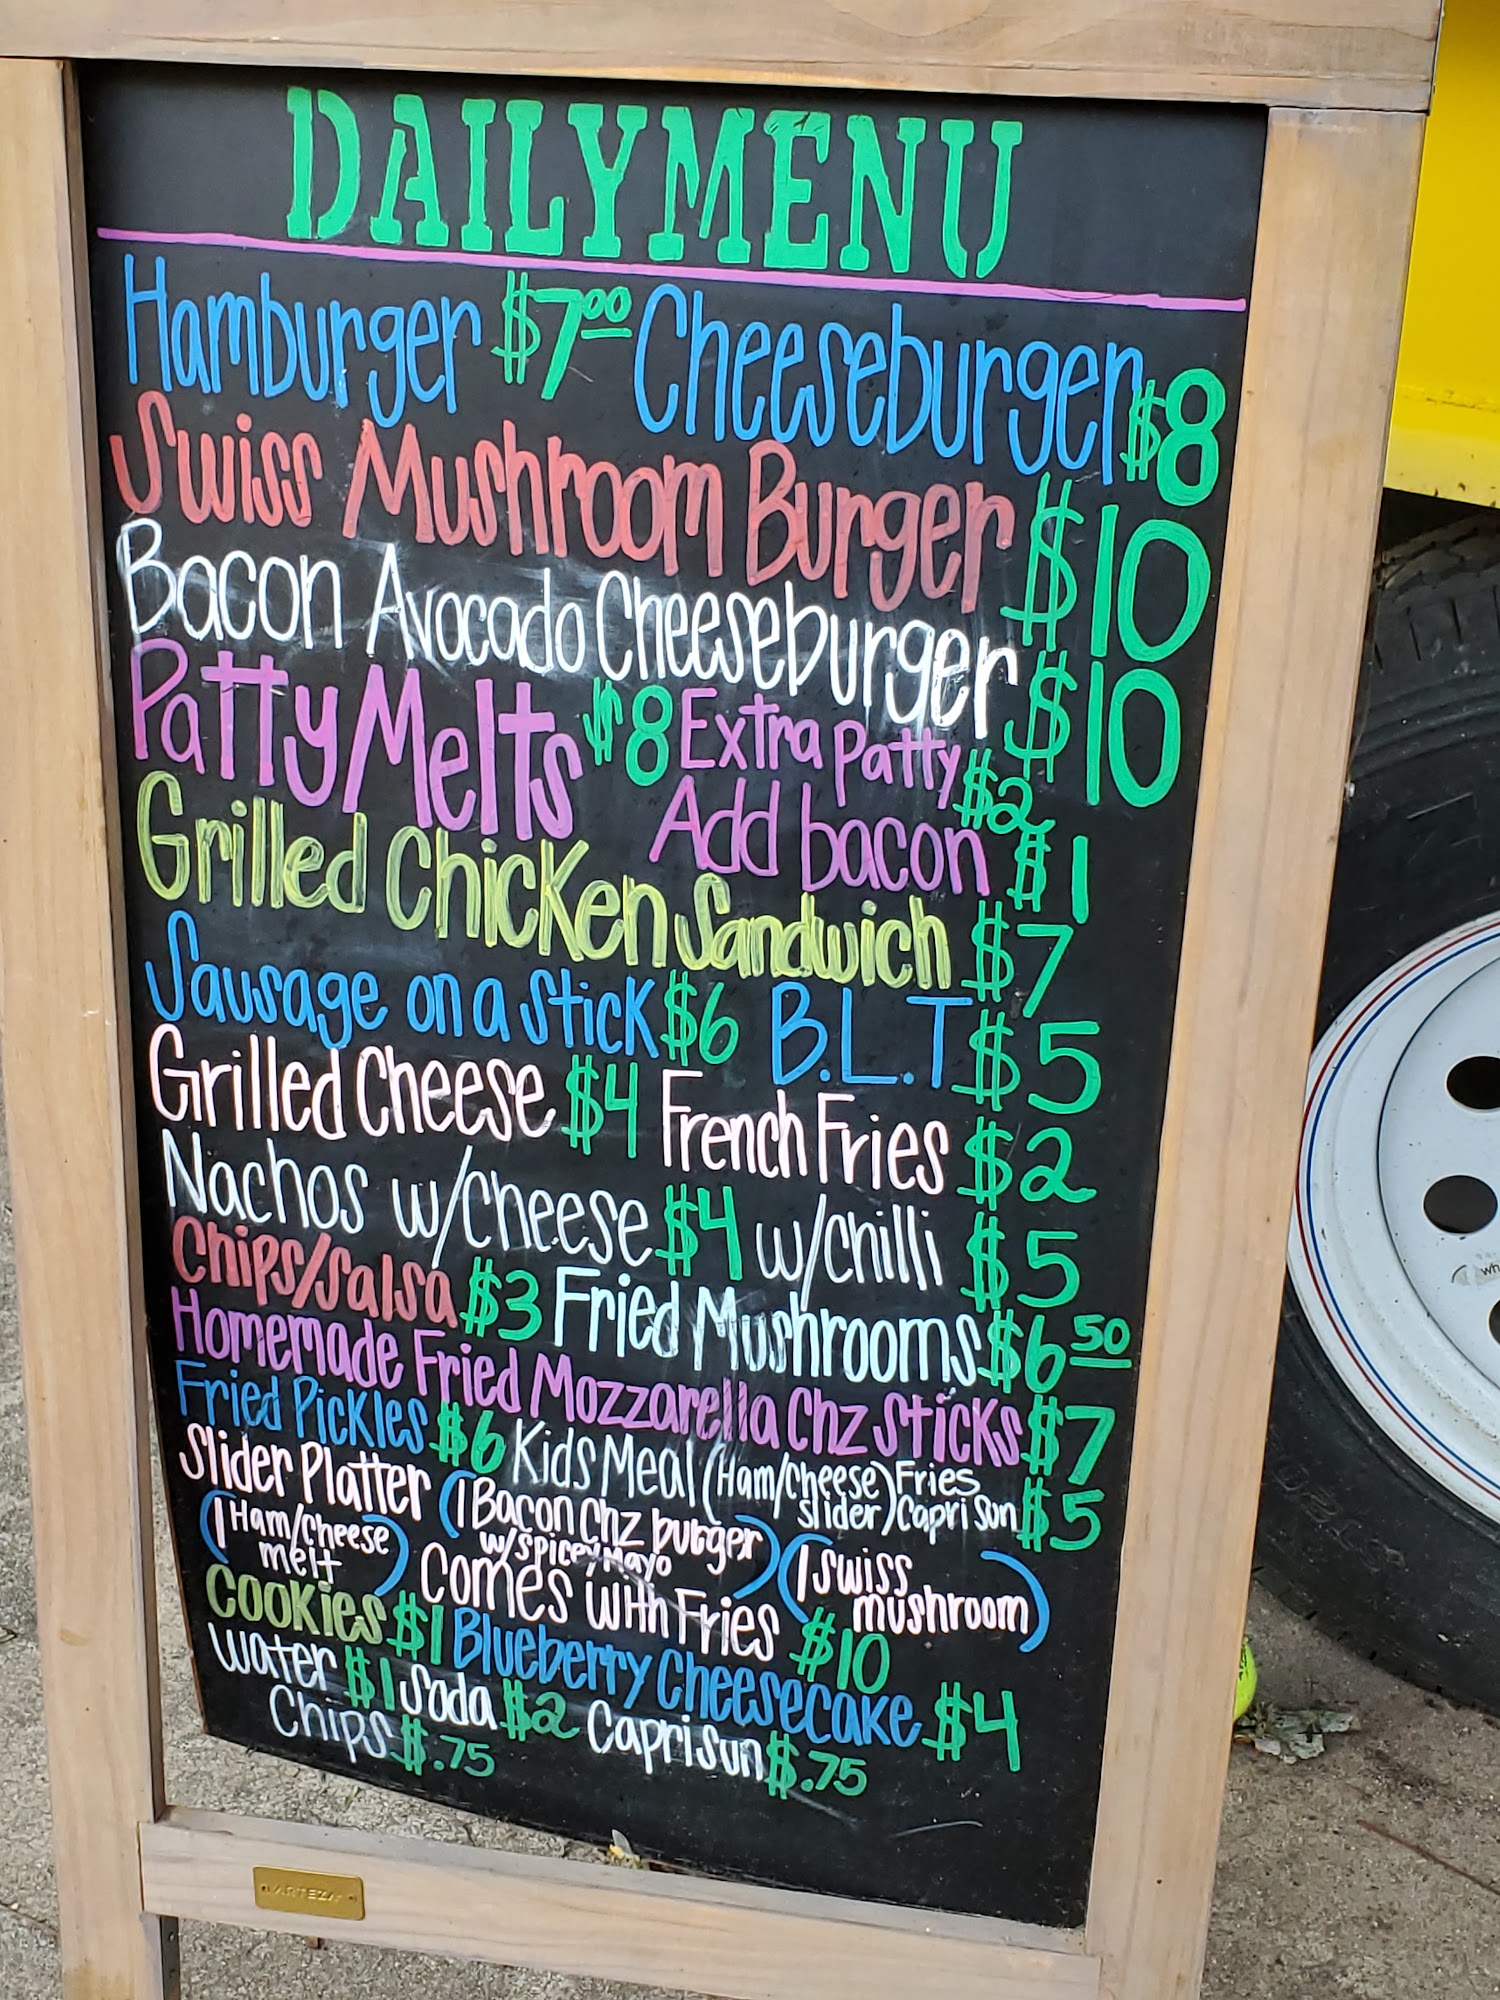 DAILY MENU
Hamburger $7.00 Cheeseburger $8
Swiss Mushroom Burger $10
Bacon Avocado Cheeseburger $10
Patty Melts $8 Extra Patty $2
Add bacon $1
Grilled Chicken Sandwich $7
Sausage on a stick $6 B.L.T $5
Grilled Cheese $4 French Fries $2
Nachos w/cheese $4 w/chilli $5
Chips/Salsa $3 Fried Mushrooms $6.50
Homemade Fried Mozzarella Chz Sticks $7
Fried Pickles $6 Kids Meal (Ham/Cheese slider) Fries Capri Sun $5
Slider Platter (1 Bacon Chz burger w/spicey Mayo) (1 Swiss mushroom)
(1 Ham/Cheese melt) Comes with Fries $10
Cookies $1 Blueberry Cheesecake $4
Water $1 Soda $2 Capri Sun $.75
Chips $.75
ARTEZA